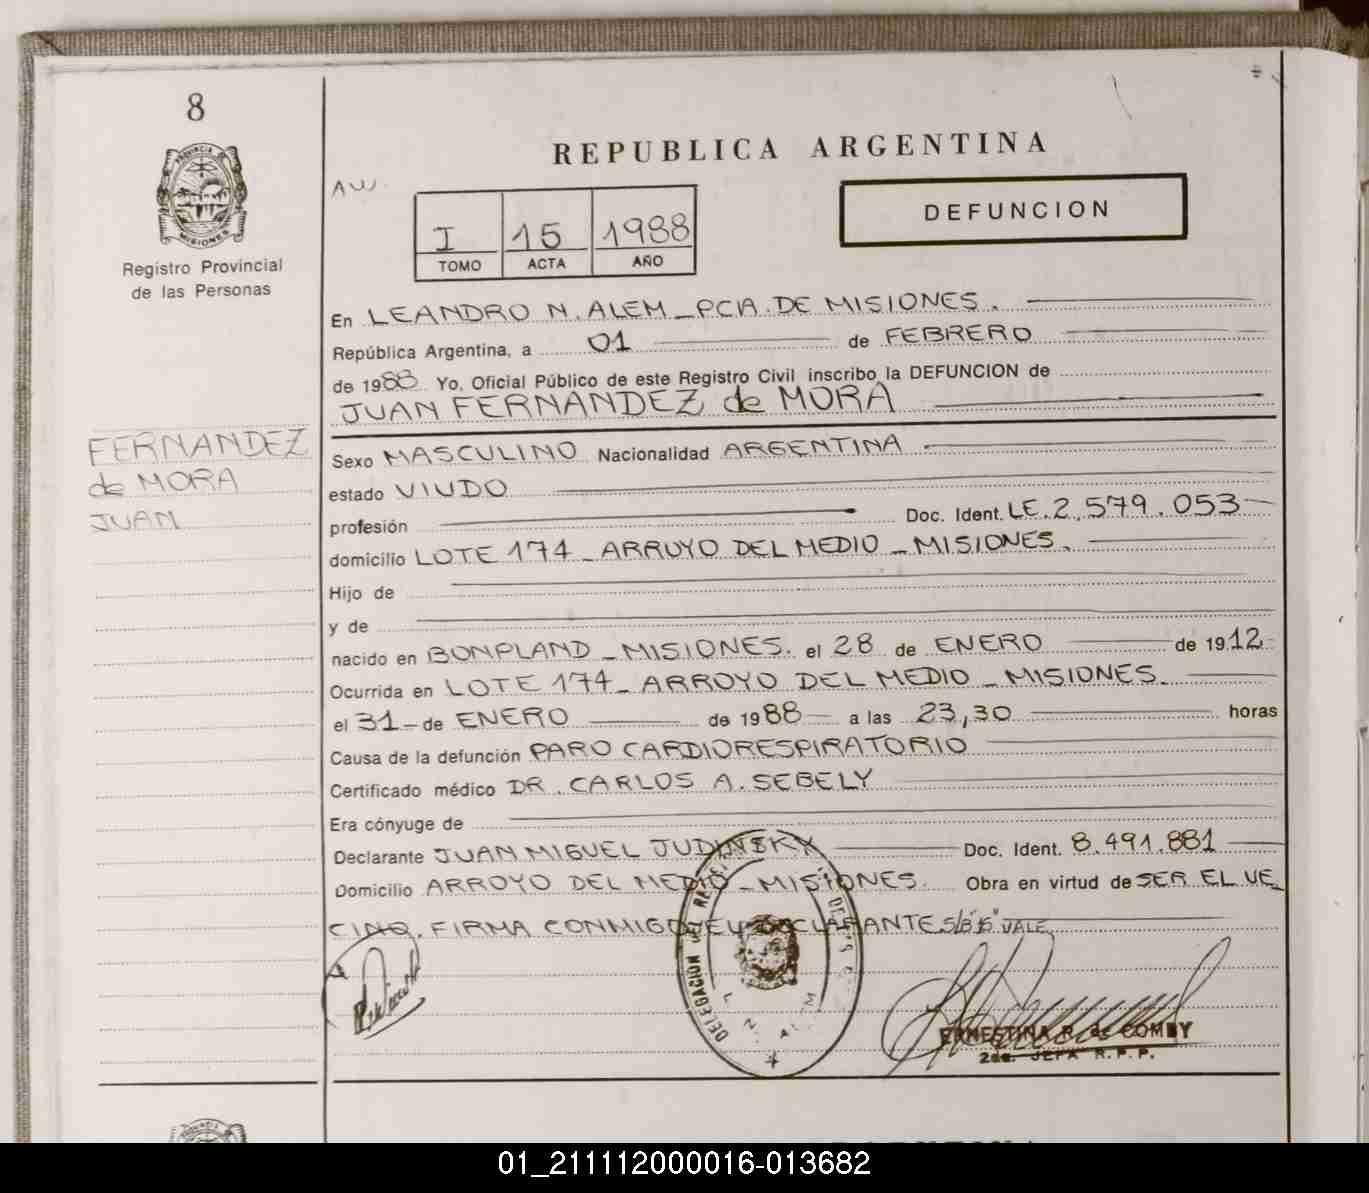 8
PROVINCIA DE
MISIONES
Registro Provincial
de las Personas
FERNANDEZ
de MORA
JUAN
REPUBLICA ARGENTINA
AW.
I 15 1988
TOMO ACTA AÑO
DEFUNCION
En LEANDRO N. ALEM_PCIA. DE MISIONES.
República Argentina, a 01 de FEBRERO
de 1988 Yo, Oficial Público de este Registro Civil inscribo la DEFUNCION de
JUAN FERNANDEZ de MORA
Sexo MASCULINO Nacionalidad ARGENTINA
estado VIUDO
profesión Doc. Ident. LE. 2.579.053
domicilio LOTE 174_ARRUYO DEL MEDIO_MISIONES.
Hijo de
y de
nacido en BONPLAND_MISIONES. el 28 de ENERO de 1912
Ocurrida en LOTE 174_ARROYO DEL MEDIO_MISIONES.
el 31 de ENERO de 1988 a las 23,30 horas
Causa de la defunción PARO CARDIORESPIRATORIO
Certificado médico DR. CARLOS A. SEBELY
Era cónyuge de
Declarante JUAN MIGUEL JUDINSKY Doc. Ident. 8.491.881
Domicilio ARROYO DEL MEDIO_MISIONES. Obra en virtud de SER EL VE_
CINO. FIRMA CONMIGO EL DECLARANTE. VALE
DELEGACION
L. N. ALEM
ERNESTINA R. de COMBY
2da. JEFA R.P.P.
01_211112000016-013682